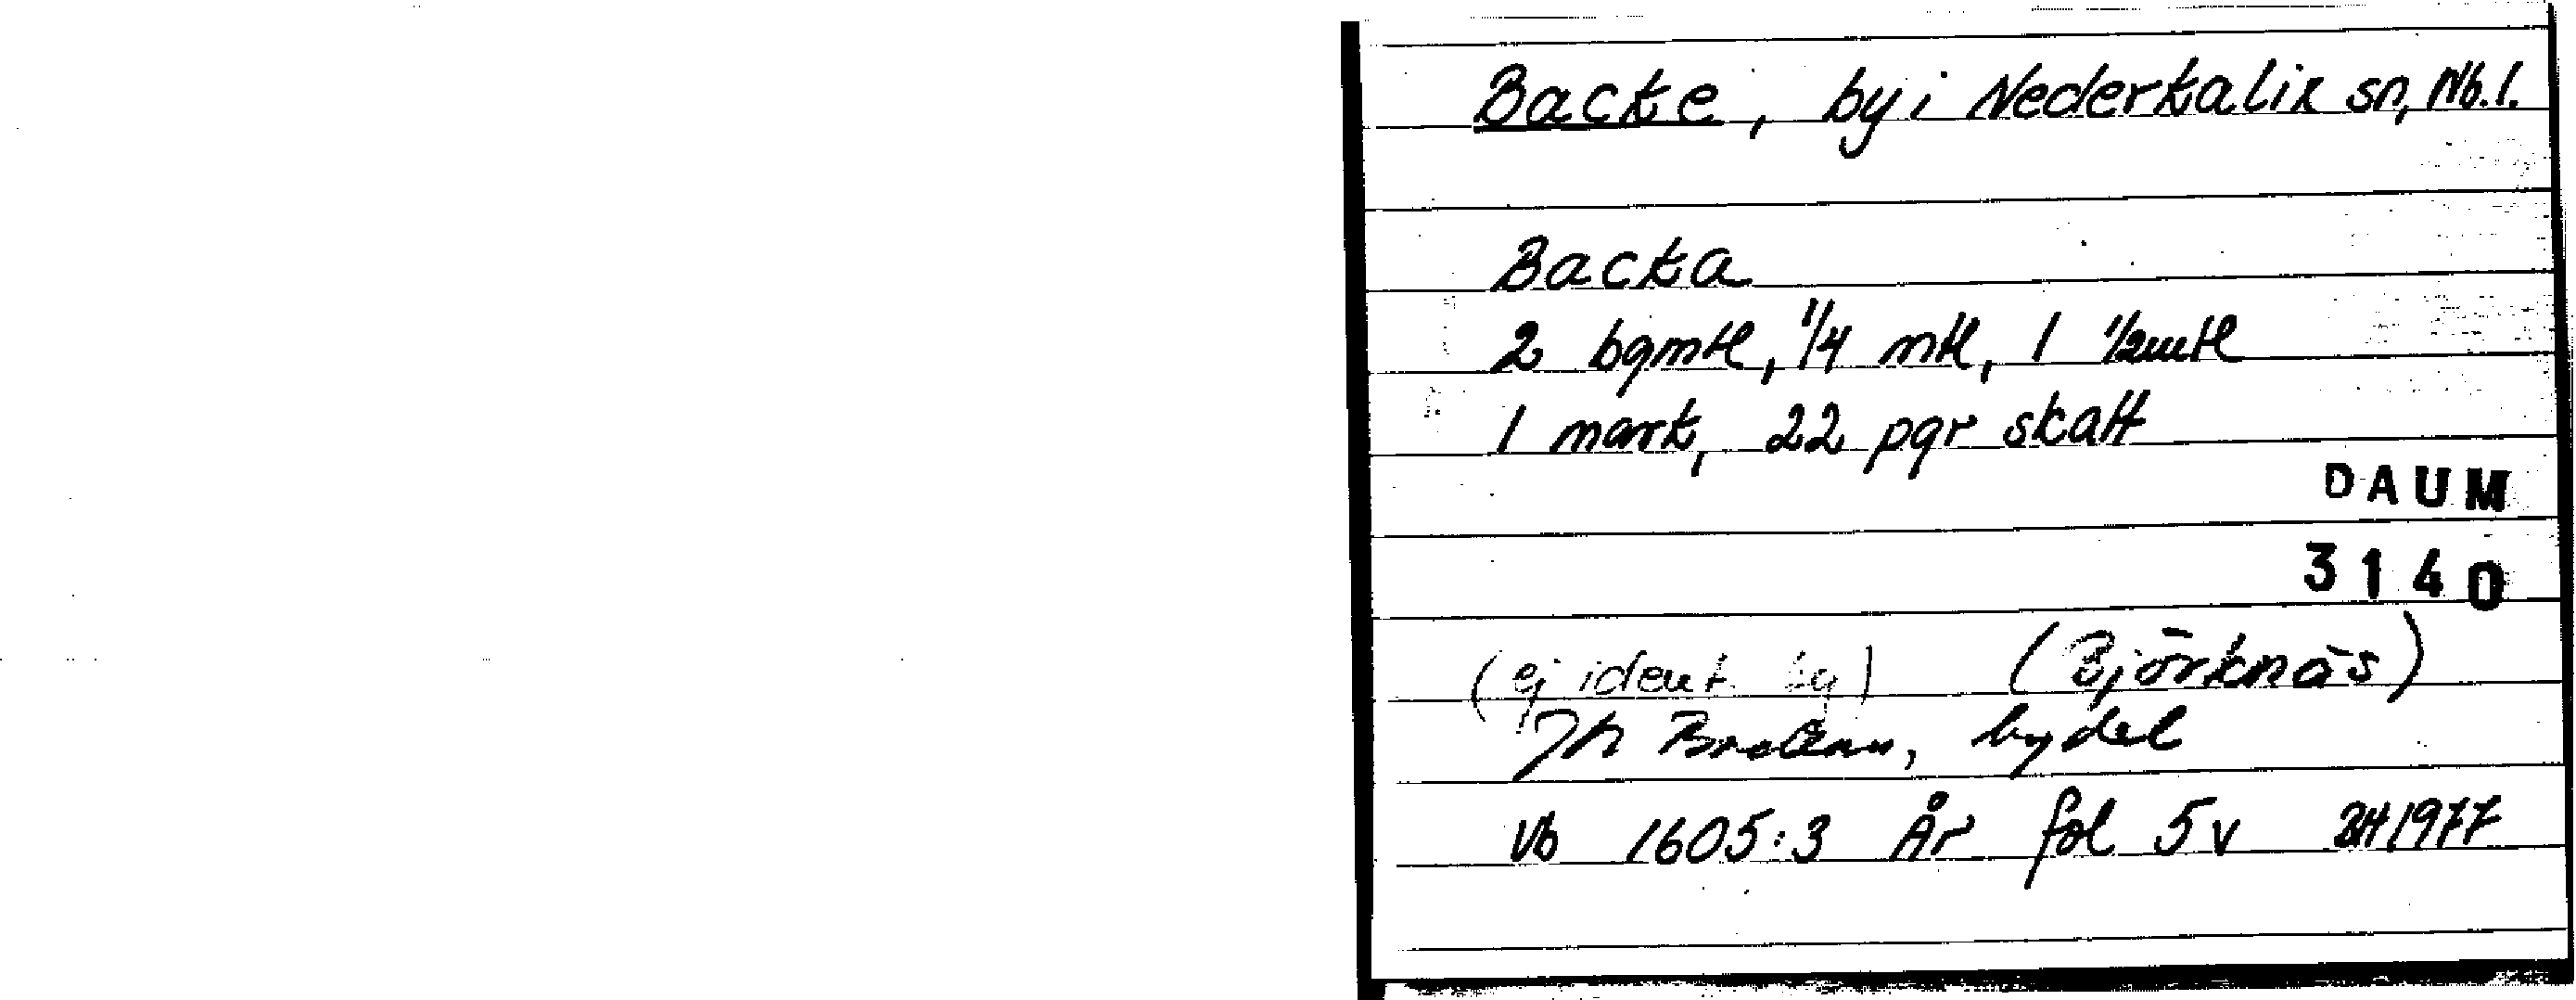 Backe, by i Nederkalix sn, Nb.l.
Backa
2 bgmtl, 1/4 mtl, 1 1/2 mtl
1 mark, 22 pgr skatt
DAUM
3140
(ej ident. by) (Björknäs)
bydel
Vb 1605:3 År fol 5v BH 1977